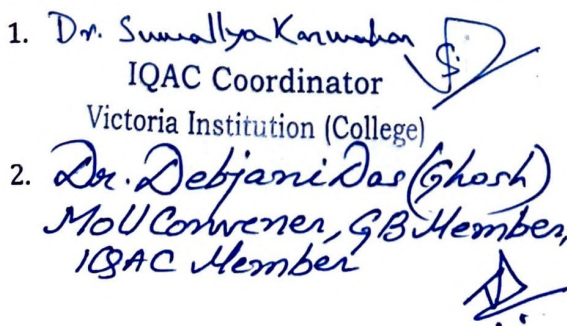 1. Dr. Sumallya Karmakar
IQAC Coordinator
Victoria Institution (College)
2. Dr. Debjani Das (Ghosh)
MoU Convener, GB Member,
IQAC Member